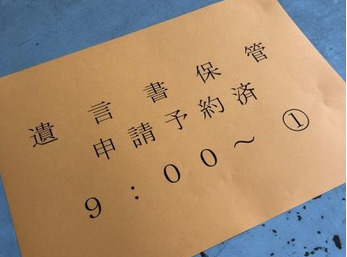 遺言書保管
申請予約済
9:00～ ①